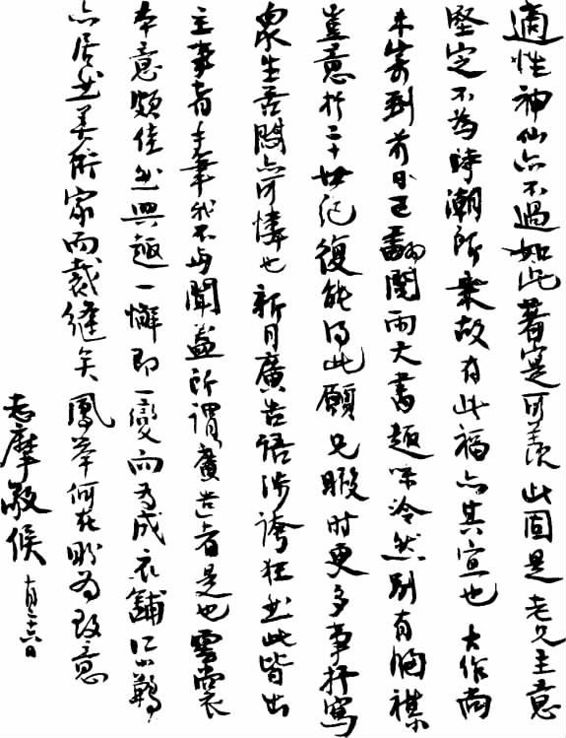 適性神仙亦不過如此著實可羨此固是老兄主意
堅定不為時潮所乘故有此福亦其宜也大作尚
未寄到前日已翻閱兩大書趣味泠然別有胸襟
豈意於二十世紀復能得此願兄暇时更多事抒寫
眾生吾儕亦可憐也新月廣告語涉誇狂然此皆出
主事者手筆我不与聞蓋所谓廣告者是也雲裳
本意頗佳然興趣一懈即一變而为成衣鋪江小鶼
亦居然美術家而裁縫矣鳳舉何在盼为致意
志摩敬候 十月二十六日